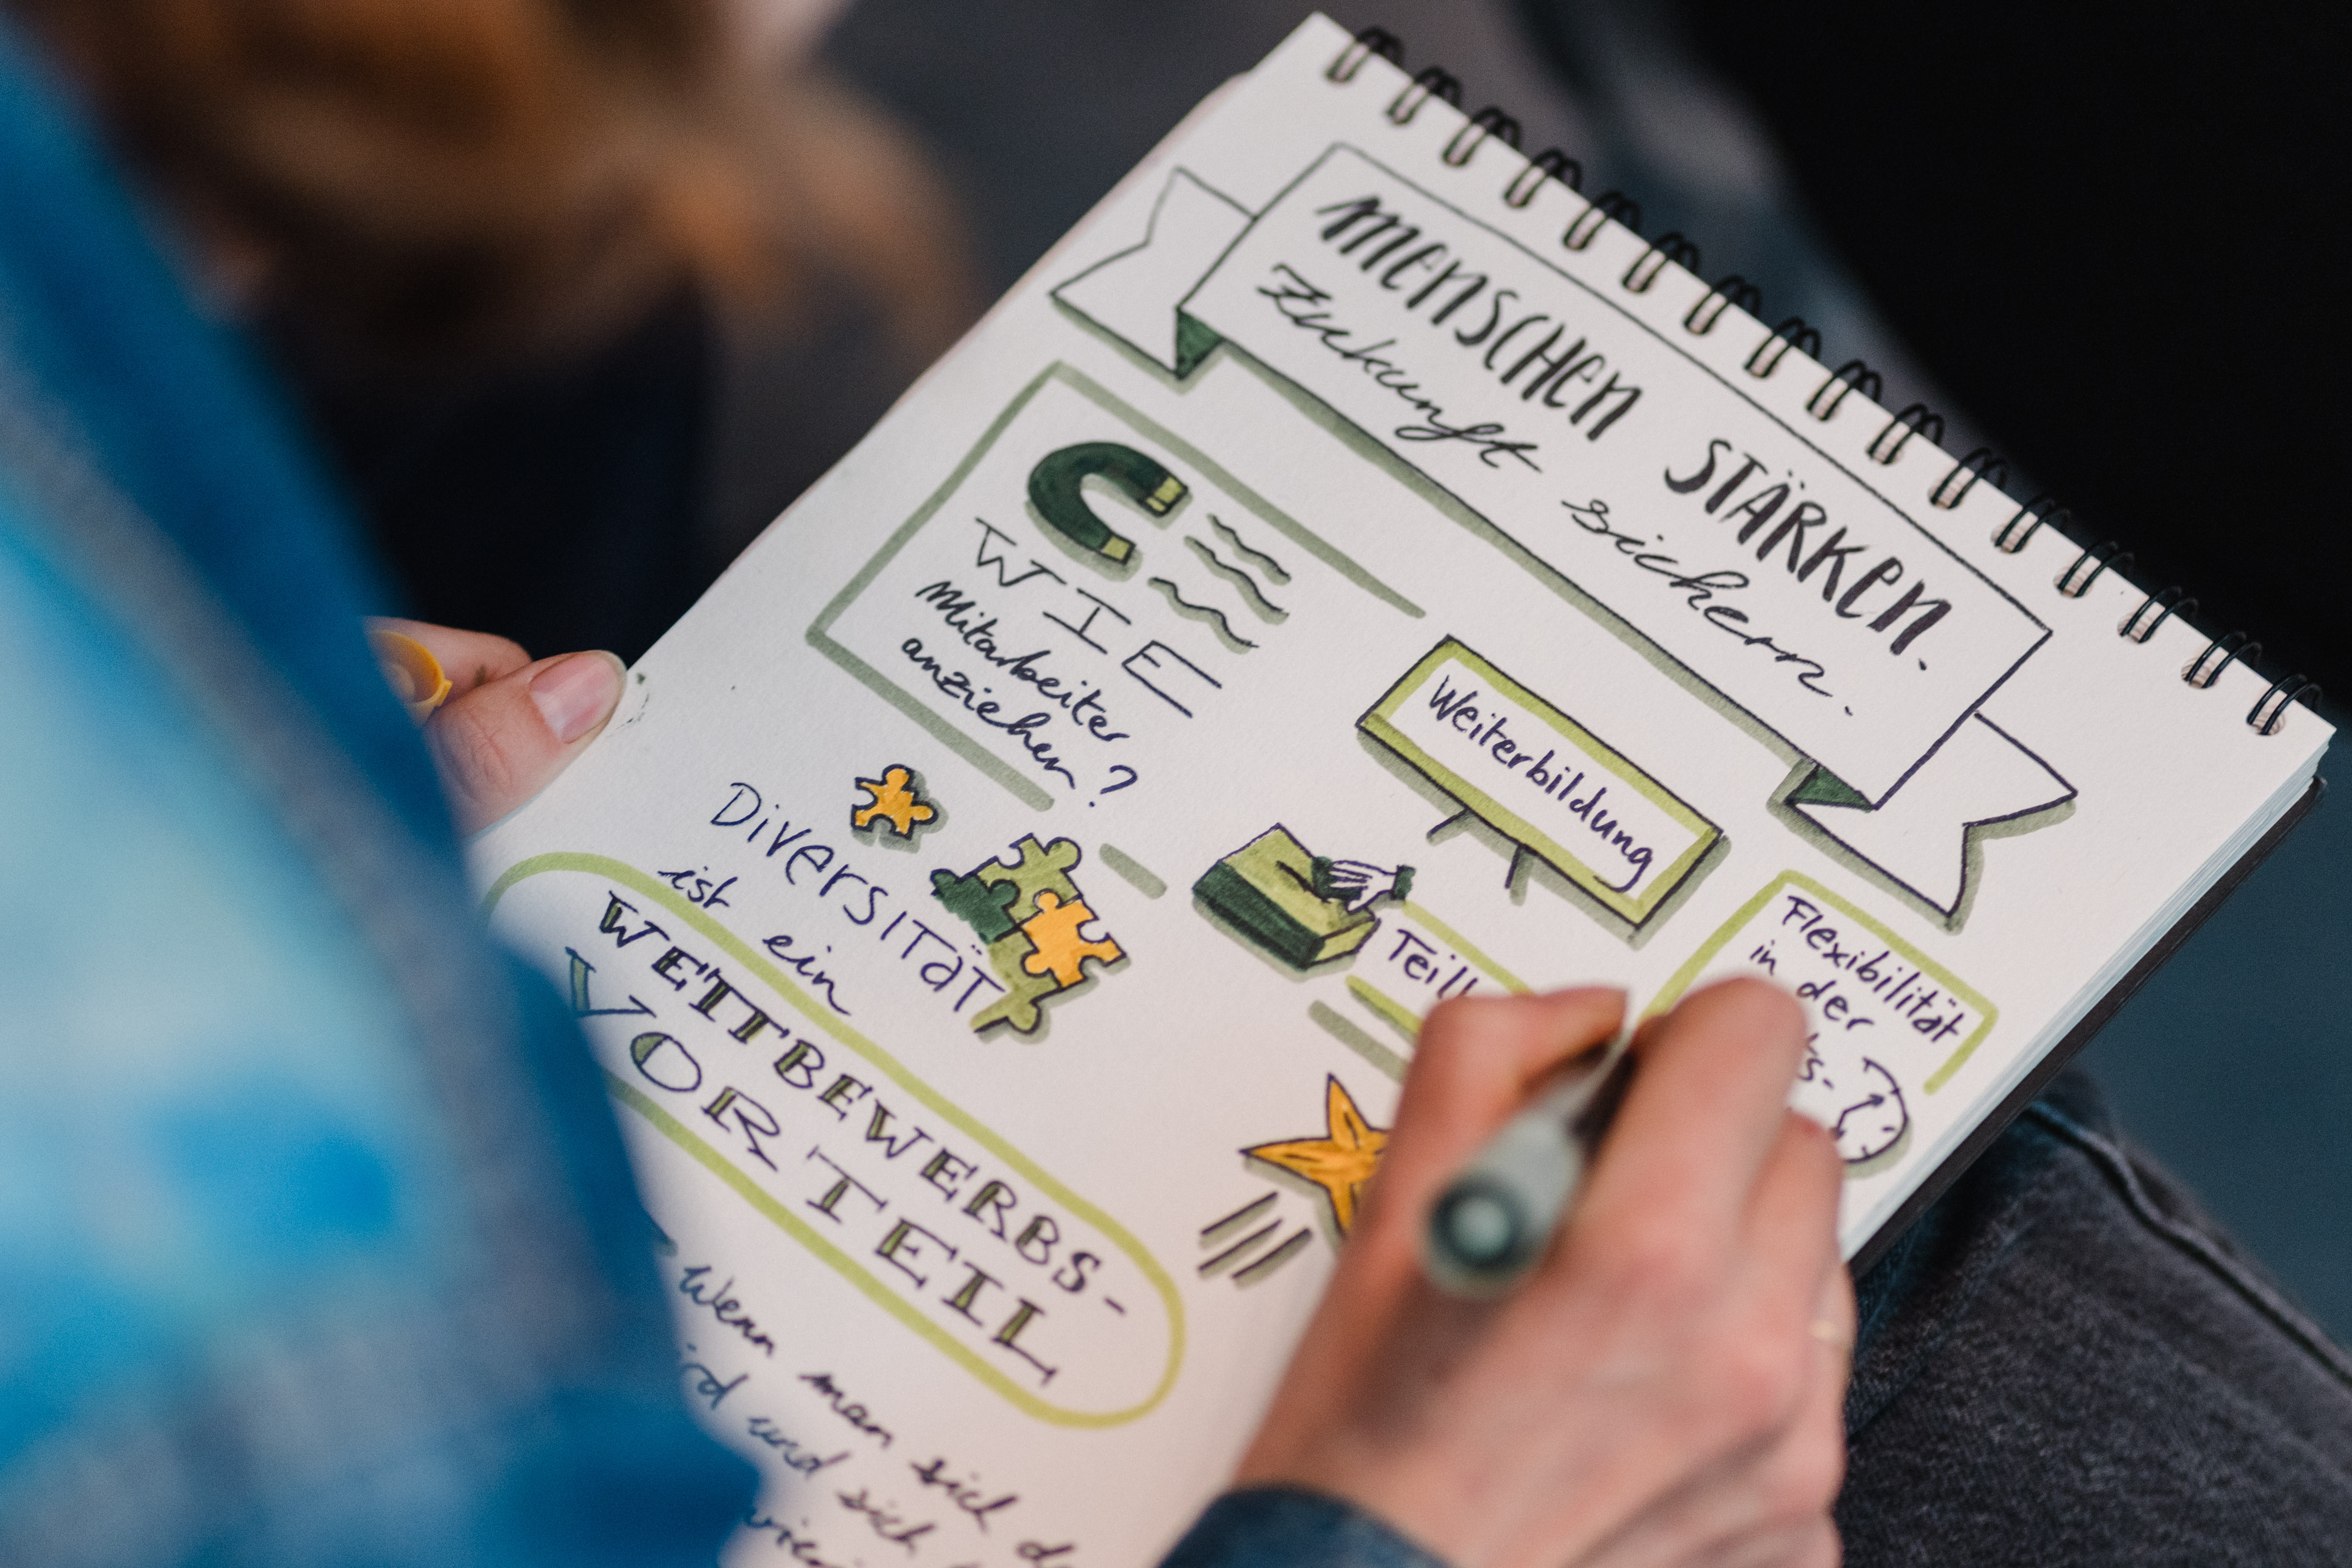 MENSCHEN STÄRKEN.
Zukunft sichern.
WIE
Mitarbeiter
anziehen?
Weiterbildung
Flexibilität
in der
Diversität
ist ein
WETTBEWERBS-
VORTEIL
Wenn man sich
und sich